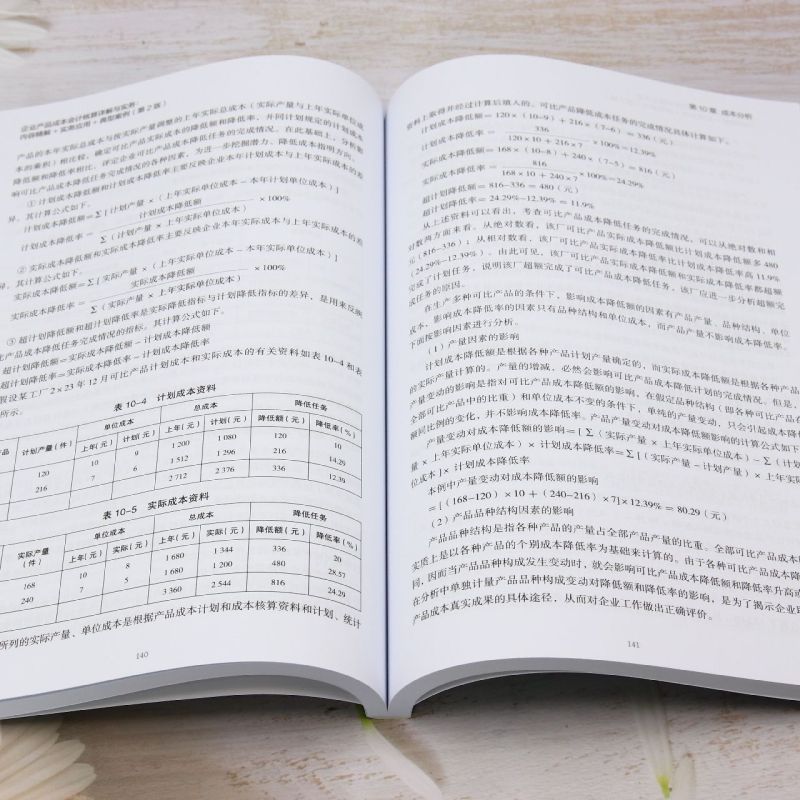 企业产品成本会计核算详解与实务
内容精解+实操应用+典型案例(第2版)
产品的本年实际总成本与按实际产量调整的上年实际总成本(实际产量与上年实际单位成
本的乘积)相比较,确定可比产品实际成本的降低额和降低率,并同计划规定的计划成本
降低额和降低率相比,评定企业可比产品成本降低任务的完成情况。在此基础上,分析影
响可比产品成本降低任务完成情况的各种因素,为进一步挖掘潜力、降低成本指明方向。
①计划成本降低额和计划成本降低率主要反映企业本年计划成本与上年实际成本的差
异,其计算公式如下。
计划成本降低额=∑[计划产量×(上年实际单位成本-本年计划单位成本)]
计划成本降低率=计划成本降低额/∑(计划产量×上年实际单位成本)×100%
②实际成本降低额和实际成本降低率主要反映企业本年实际成本与上年实际成本的差
异,其计算公式如下。
实际成本降低额=∑[实际产量×(上年实际单位成本-本年实际单位成本)]
实际成本降低率=实际成本降低额/∑(实际产量×上年实际单位成本)×100%
③超计划降低额和超计划降低率是实际降低指标与计划降低指标的差异,是用来反映
比产品成本降低任务完成情况的指标。其计算公式如下。
超计划降低额=实际成本降低额-计划成本降低额
超计划降低率=实际成本降低率-计划成本降低率
假设某工厂2×23年12月可比产品计划成本和实际成本的有关资料如表10-4和表
所示。
表10-4 计划成本资料
产品 计划产量(件) 单位成本 总成本 降低任务
上年(元) 计划(元) 上年(元) 计划(元) 降低额(元) 降低率(%)
120 10 9 1 200 1 080 120 10
216 7 6 1 512 1 296 216 14.29
2 712 2 376 336 12.39
表10-5 实际成本资料
实际产量(件) 单位成本 总成本 降低任务
上年(元) 实际(元) 上年(元) 实际(元) 降低额(元) 降低率(%)
168 10 8 1 680 1 344 336 20
240 7 5 1 680 1 200 480 28.57
3 360 2 544 816 24.29
所列的实际产量、单位成本是根据产品成本计划和成本核算资料和计划、统计
140
第10章 成本分析
资料上取得并经过计算后填入的。可比产品降低成本任务的完成情况具体计算如下。
计划成本降低额=120×(10-9)+216×(7-6)=336(元)
计划成本降低率=336/120×10+216×7×100%=12.39%
实际成本降低额=168×(10-8)+240×(7-5)=816(元)
实际成本降低率=816/168×10+240×7×100%=24.29%
超计划降低额=816-336=480(元)
超计划降低率=24.29%-12.39%=11.9%
从上述资料可以看出,考查可比产品成本降低任务的完成情况,可以从绝对数和相
对数两方面来看。从绝对数看,该厂可比产品实际成本降低额比计划成本降低额多480
元(816-336);从相对数看,该厂可比产品实际成本降低率比计划成本降低率高11.9%
(24.29%-12.39%)。由此可见,该厂可比产品实际成本降低额和实际成本降低率都超额
完成了计划任务,说明该厂超额完成了可比产品成本降低任务,该厂应进一步分析超额完
成任务的原因。
在生产多种可比产品的条件下,影响成本降低额的因素有产品产量、品种结构、单位
成本,影响成本降低率的因素只有品种结构和单位成本,而产品产量不影响成本降低率。
下面按影响因素进行分析。
(1)产量因素的影响
计划成本降低额是根据各种产品计划产量确定的,而实际成本降低额是根据各种产品
的实际产量计算的。产量的增减,必然会影响可比产品成本降低计划的完成情况。但是,
产量变动的影响是指对可比产品成本降低额的影响,在假定品种结构(即各种可比产品在
全部可比产品中的比重)和单位成本不变的条件下,单纯的产量变动,只会引起成本降
额同比例的变化,并不影响成本降低率。产品产量变动对成本降低额影响的计算公式如下
产量变动对成本降低额的影响=[∑(实际产量×上年实际单位成本)-∑(计
量×上年实际单位成本)×计划成本降低率=∑[(实际产量-计划产量)×上年实际
位成本]×计划成本降低率
本例中产量变动对成本降低额的影响
=[(168-120)×10+(240-216)×7]×12.39%=80.29(元)
(2)产品品种结构因素的影响
产品品种结构是指各种产品的产量占全部产品产量的比重。全部可比产品成本
实质上是以各种产品的个别成本降低率为基础来计算的。由于各种可比产品成本降
同,因而当产品品种构成发生变动时,就会影响可比产品成本降低额和降低率升高或
在分析中单独计量产品品种构成变动对降低额和降低率的影响,是为了揭示企业取
产品成本真实成果的具体途径,从而对企业工作做出正确评价。
141